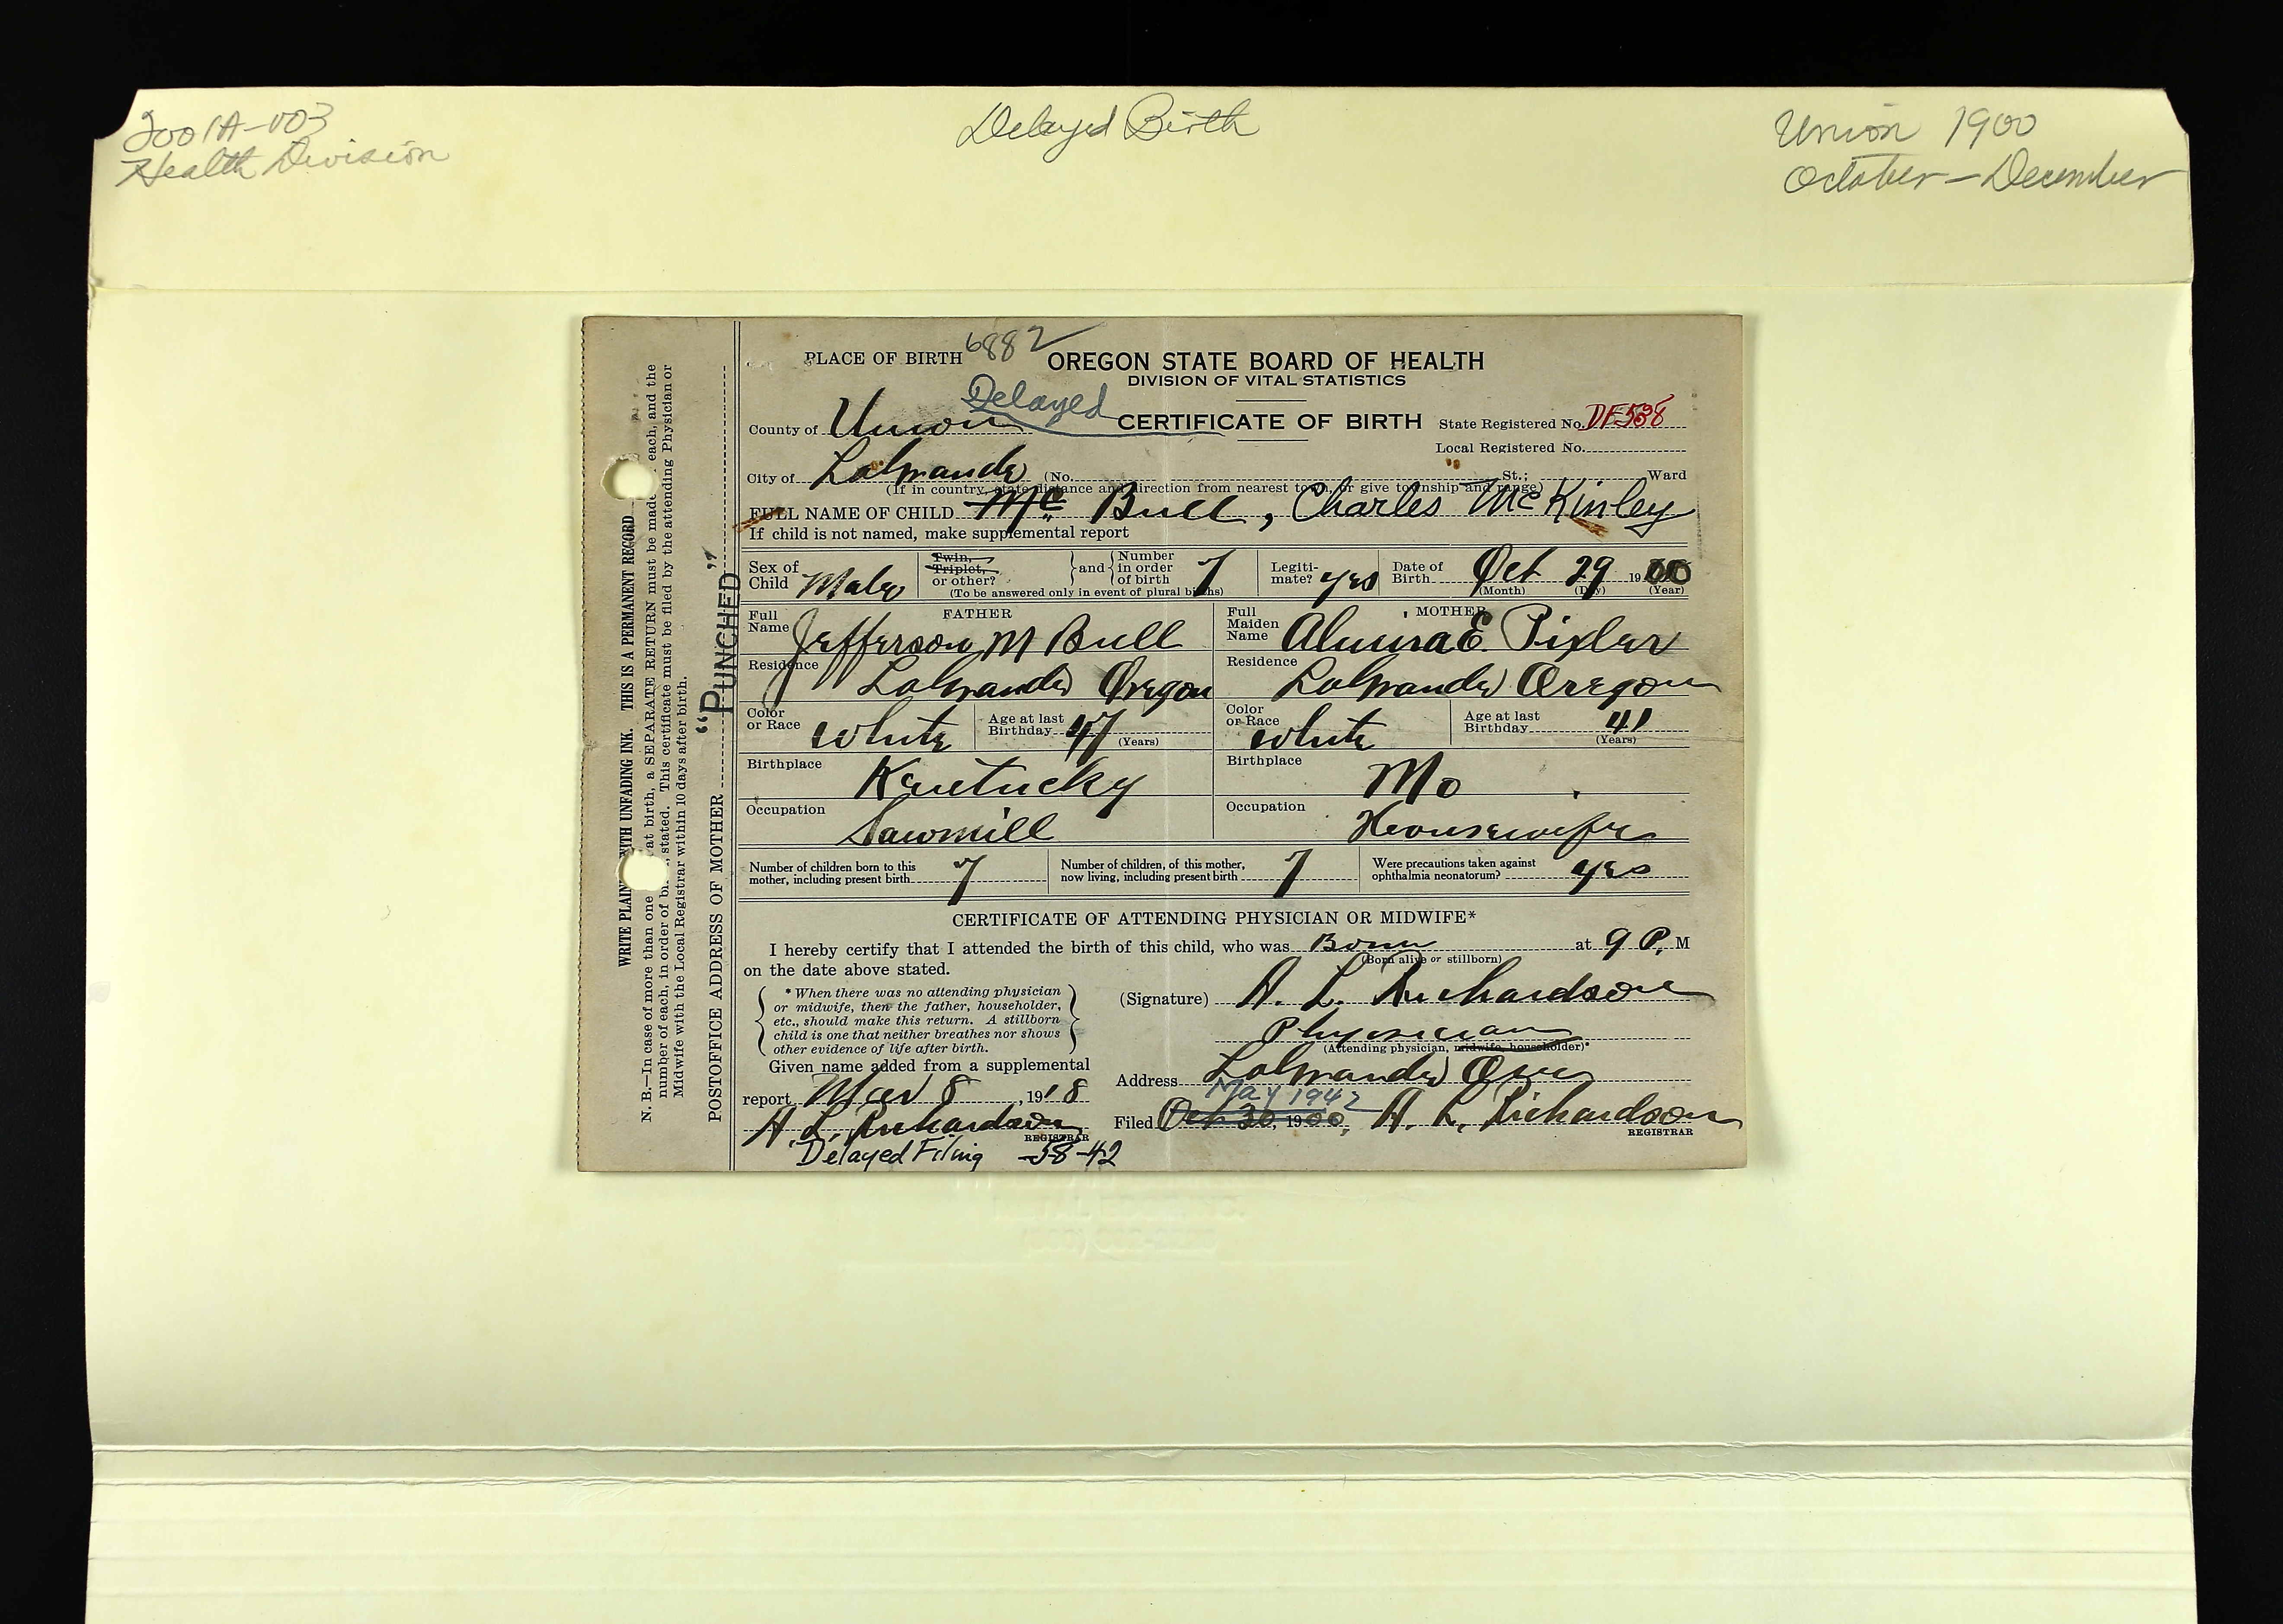 2001A-003
Health Division
Delayed Birth
Union 1900
October - December
PLACE OF BIRTH 6882
OREGON STATE BOARD OF HEALTH
DIVISION OF VITAL STATISTICS
County of Union
Delayed CERTIFICATE OF BIRTH
State Registered No. DF538
Local Registered No.
City of LaGrande (No. St.; Ward
(If in country, state distance and direction from nearest town, or give township and range)
FULL NAME OF CHILD Mc Bull, Charles McKinley
If child is not named, make supplemental report
Sex of Child Male
Twin, Triplet, or other? and Number in order of birth 7
(To be answered only in event of plural births)
Legitimate? yes
Date of Birth Oct 29 1900
(Month) (Day) (Year)
FATHER
Full Name Jefferson M Bull
Residence LaGrande Oregon
Color or Race White
Age at last Birthday 47 (Years)
Birthplace Kentucky
Occupation Sawmill
MOTHER
Full Maiden Name Almira E. Pixler
Residence LaGrande Oregon
Color or Race White
Age at last Birthday 41 (Years)
Birthplace Mo
Occupation Housewife
Number of children born to this mother, including present birth 7
Number of children, of this mother, now living, including present birth 7
Were precautions taken against ophthalmia neonatorum? yes
CERTIFICATE OF ATTENDING PHYSICIAN OR MIDWIFE*
I hereby certify that I attended the birth of this child, who was Born at 9 P. M
(Born alive or stillborn)
on the date above stated.
* When there was no attending physician
or midwife, then the father, householder,
etc., should make this return. A stillborn
child is one that neither breathes nor shows
other evidence of life after birth.
(Signature) A. L. Richardson
Physician
(Attending physician, midwife, householder)*
Given name added from a supplemental
report Mar 8, 1918
A. L. Richardson
REGISTRAR
Address LaGrande Ore
May 1942
Filed Oct 30, 1900, A. L. Richardson
REGISTRAR
Delayed Filing 5-8-42
WRITE PLAIN WITH UNFADING INK. THIS IS A PERMANENT RECORD
N. B.—In case of more than one at birth, a SEPARATE RETURN must be made each, and the
number of each, in order of bi stated. This certificate must be filed by the attending Physician or
Midwife with the Local Registrar within 10 days after birth.
POSTOFFICE ADDRESS OF MOTHER
"PUNCHED"